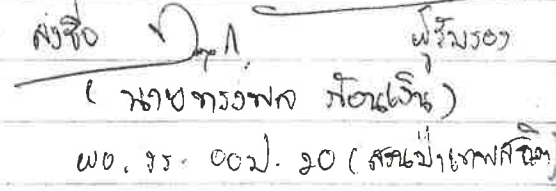 ลงชื่อ ผู้รับรอง
(นายทรงพล ก้อนเงิน)
ผอ. รร. ออป. 20 (สวนป่าเทพสถิต